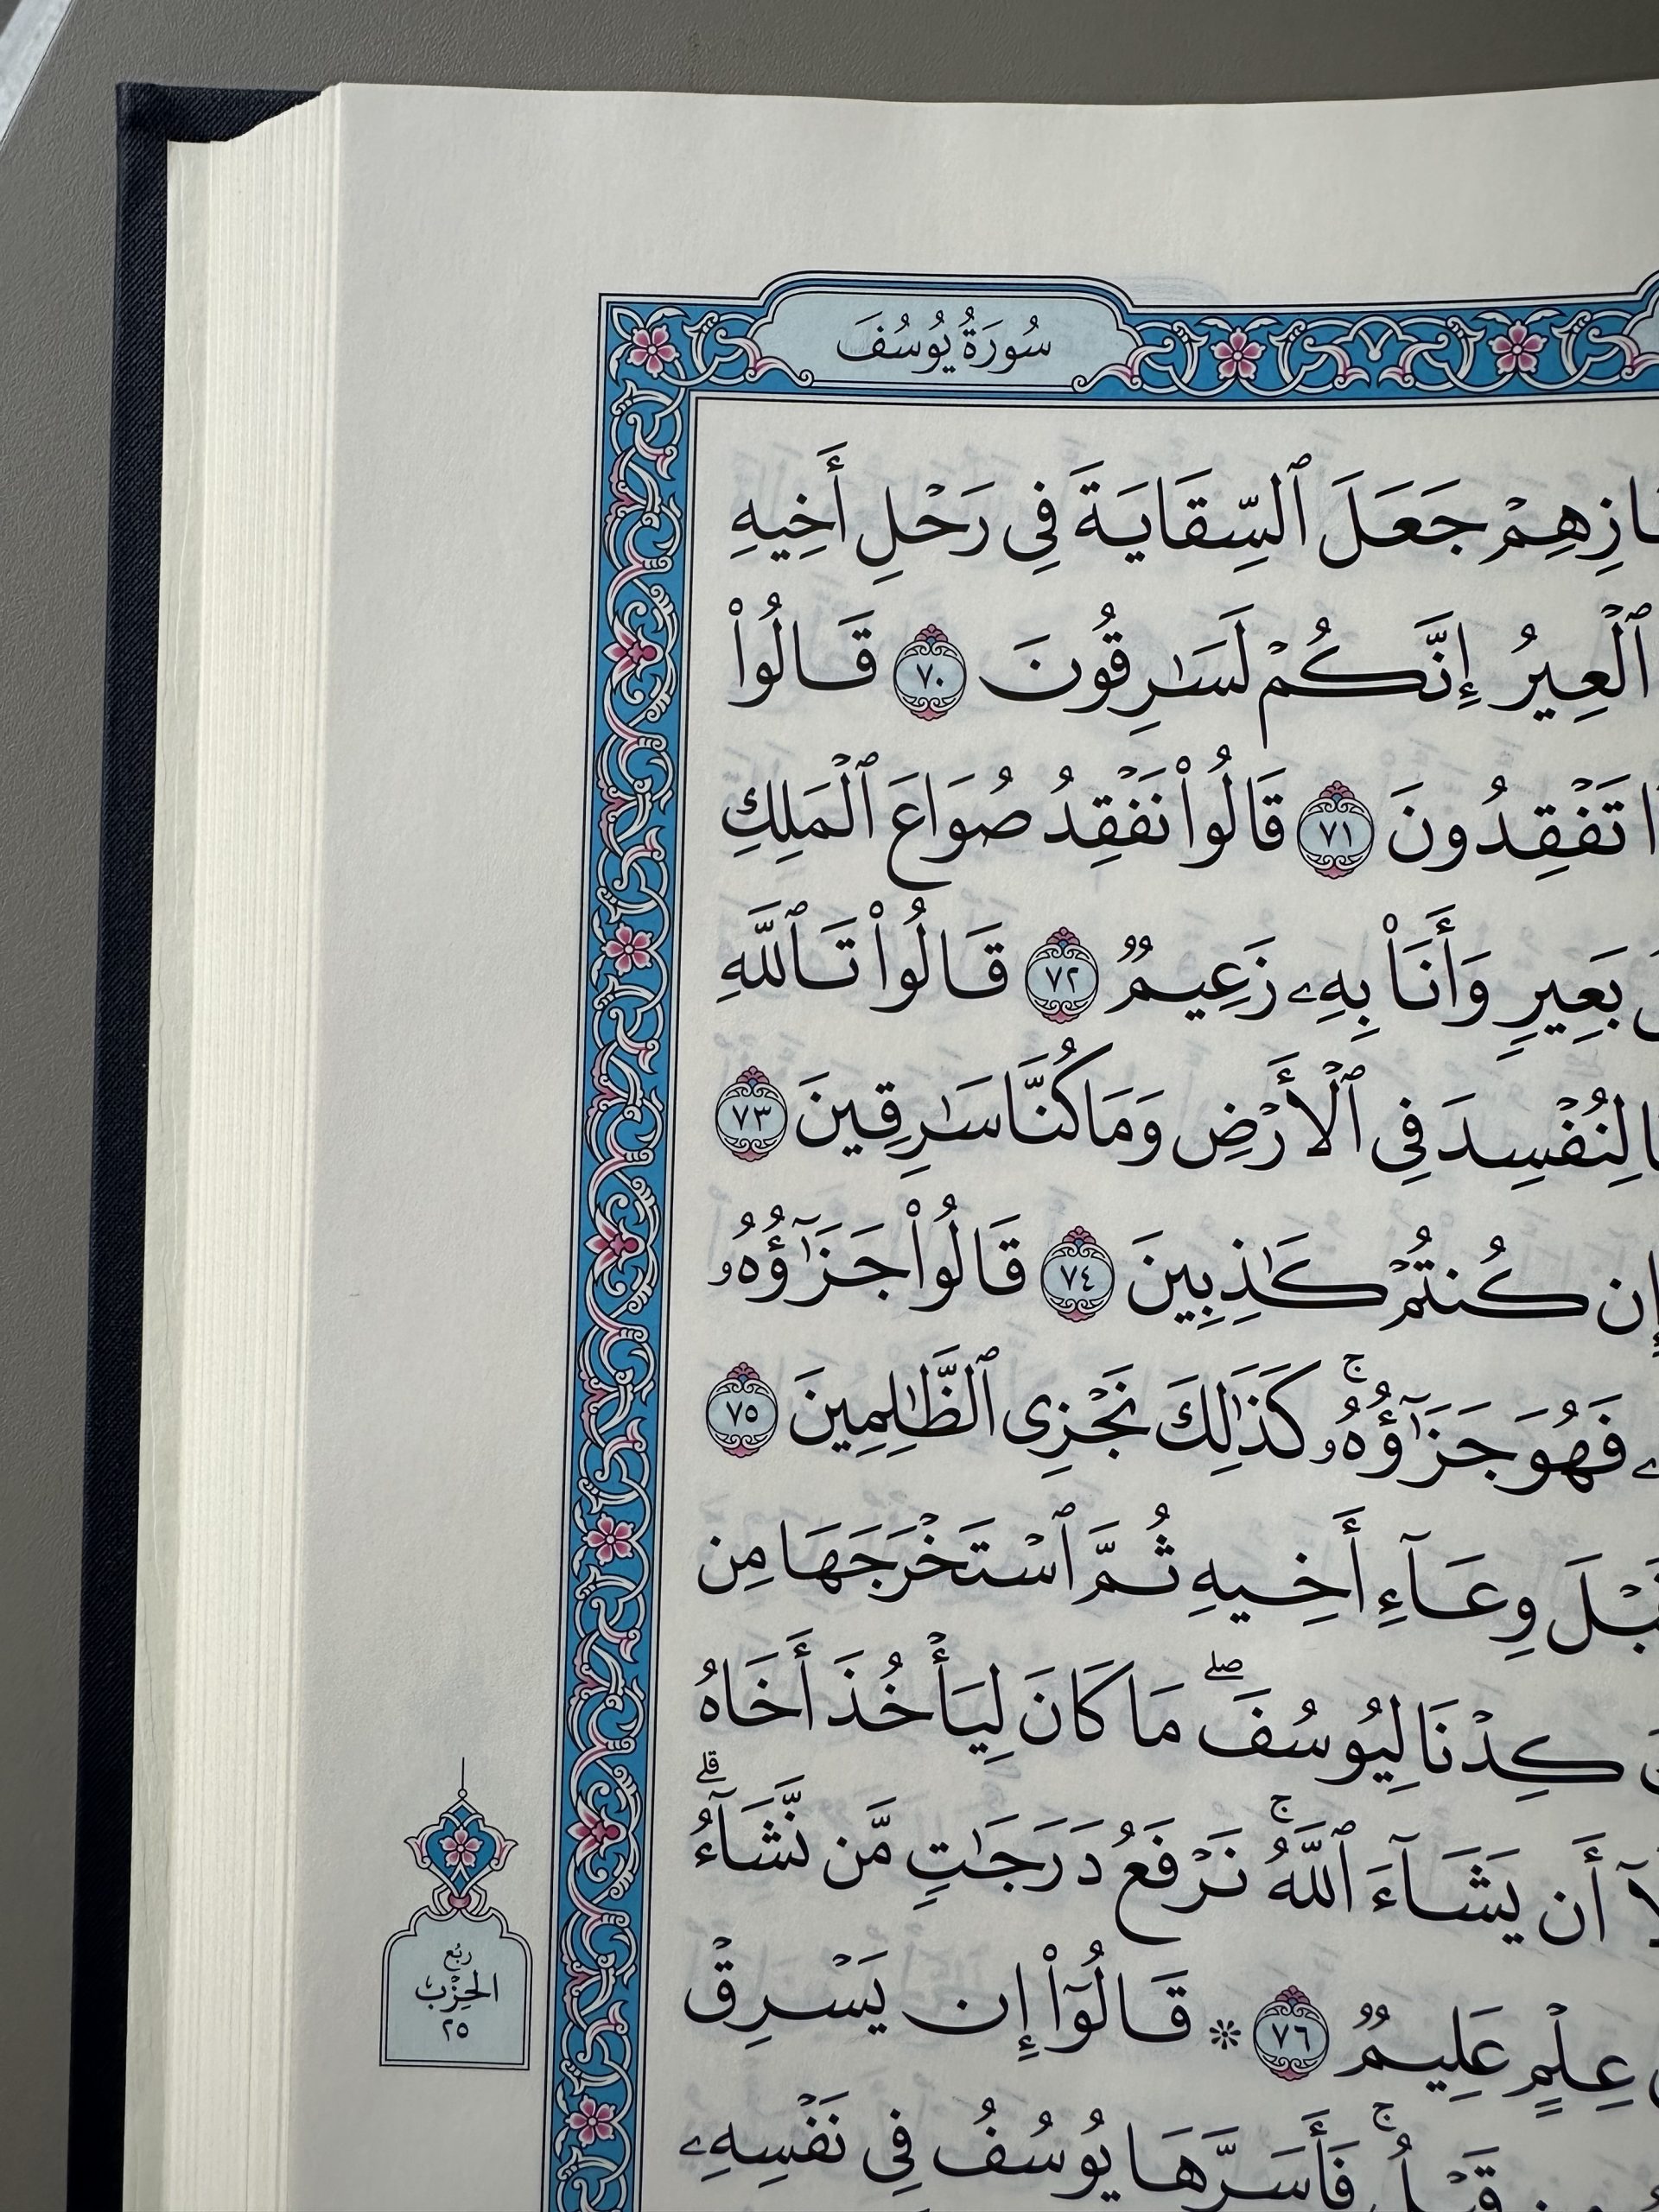 سُورَةُ يُوسُفَ
جَعَلَ ٱلسِّقَايَةَ فِى رَحْلِ أَخِيهِ
ٱلْعِيرُ إِنَّكُمْ لَسَـٰرِقُونَ ٧٠ قَالُوا۟
تَفْقِدُونَ ٧١ قَالُوا۟ نَفْقِدُ صُوَاعَ ٱلْمَلِكِ
بَعِيرٍ وَأَنَا۠ بِهِۦ زَعِيمٌ ٧٢ قَالُوا۟ تَٱللَّهِ
لِنُفْسِدَ فِى ٱلْأَرْضِ وَمَا كُنَّا سَـٰرِقِينَ ٧٣
إِن كُنتُمْ كَـٰذِبِينَ ٧٤ قَالُوا۟ جَزَٰٓؤُهُۥ
فَهُوَ جَزَٰٓؤُهُۥ ۚ كَذَٰلِكَ نَجْزِى ٱلظَّـٰلِمِينَ ٧٥
قَبْلَ وِعَآءِ أَخِيهِ ثُمَّ ٱسْتَخْرَجَهَا مِن
كِدْنَا لِيُوسُفَ ۖ مَا كَانَ لِيَأْخُذَ أَخَاهُ
أَن يَشَآءَ ٱللَّهُ ۚ نَرْفَعُ دَرَجَـٰتٍ مَّن نَّشَآءُ ۗ
عِلْمٍ عَلِيمٌ ٧٦ ۞ قَالُوٓا۟ إِن يَسْرِقْ
قَبْلُ ۚ فَأَسَرَّهَا يُوسُفُ فِى نَفْسِهِۦ
رُبُع
الحِزْب
٢٥